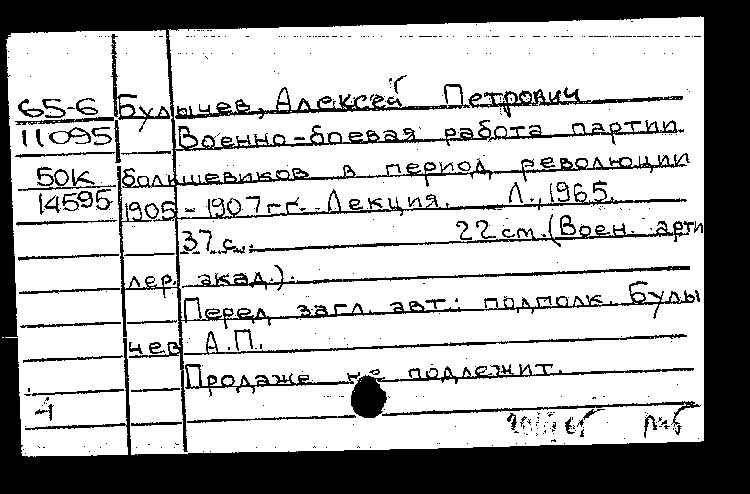 65-6 Булычев, Алексей Петрович
11095 Военно-боевая работа партии
50к большевиков в период революции
14595 1905-1907 гг. Лекция. Л., 1965.
37 с. 22 см. (Воен. арти
лер. акад.).
Перед загл. авт.: подполк. Булы
чев А.П.
Продаже не подлежит.
4